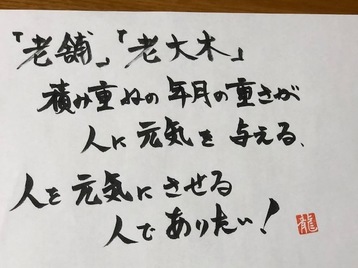 「老舗」「老大木」
積み重ねの年月の重さが
人に元気を与える、
人を元気にさせる
人でありたい!